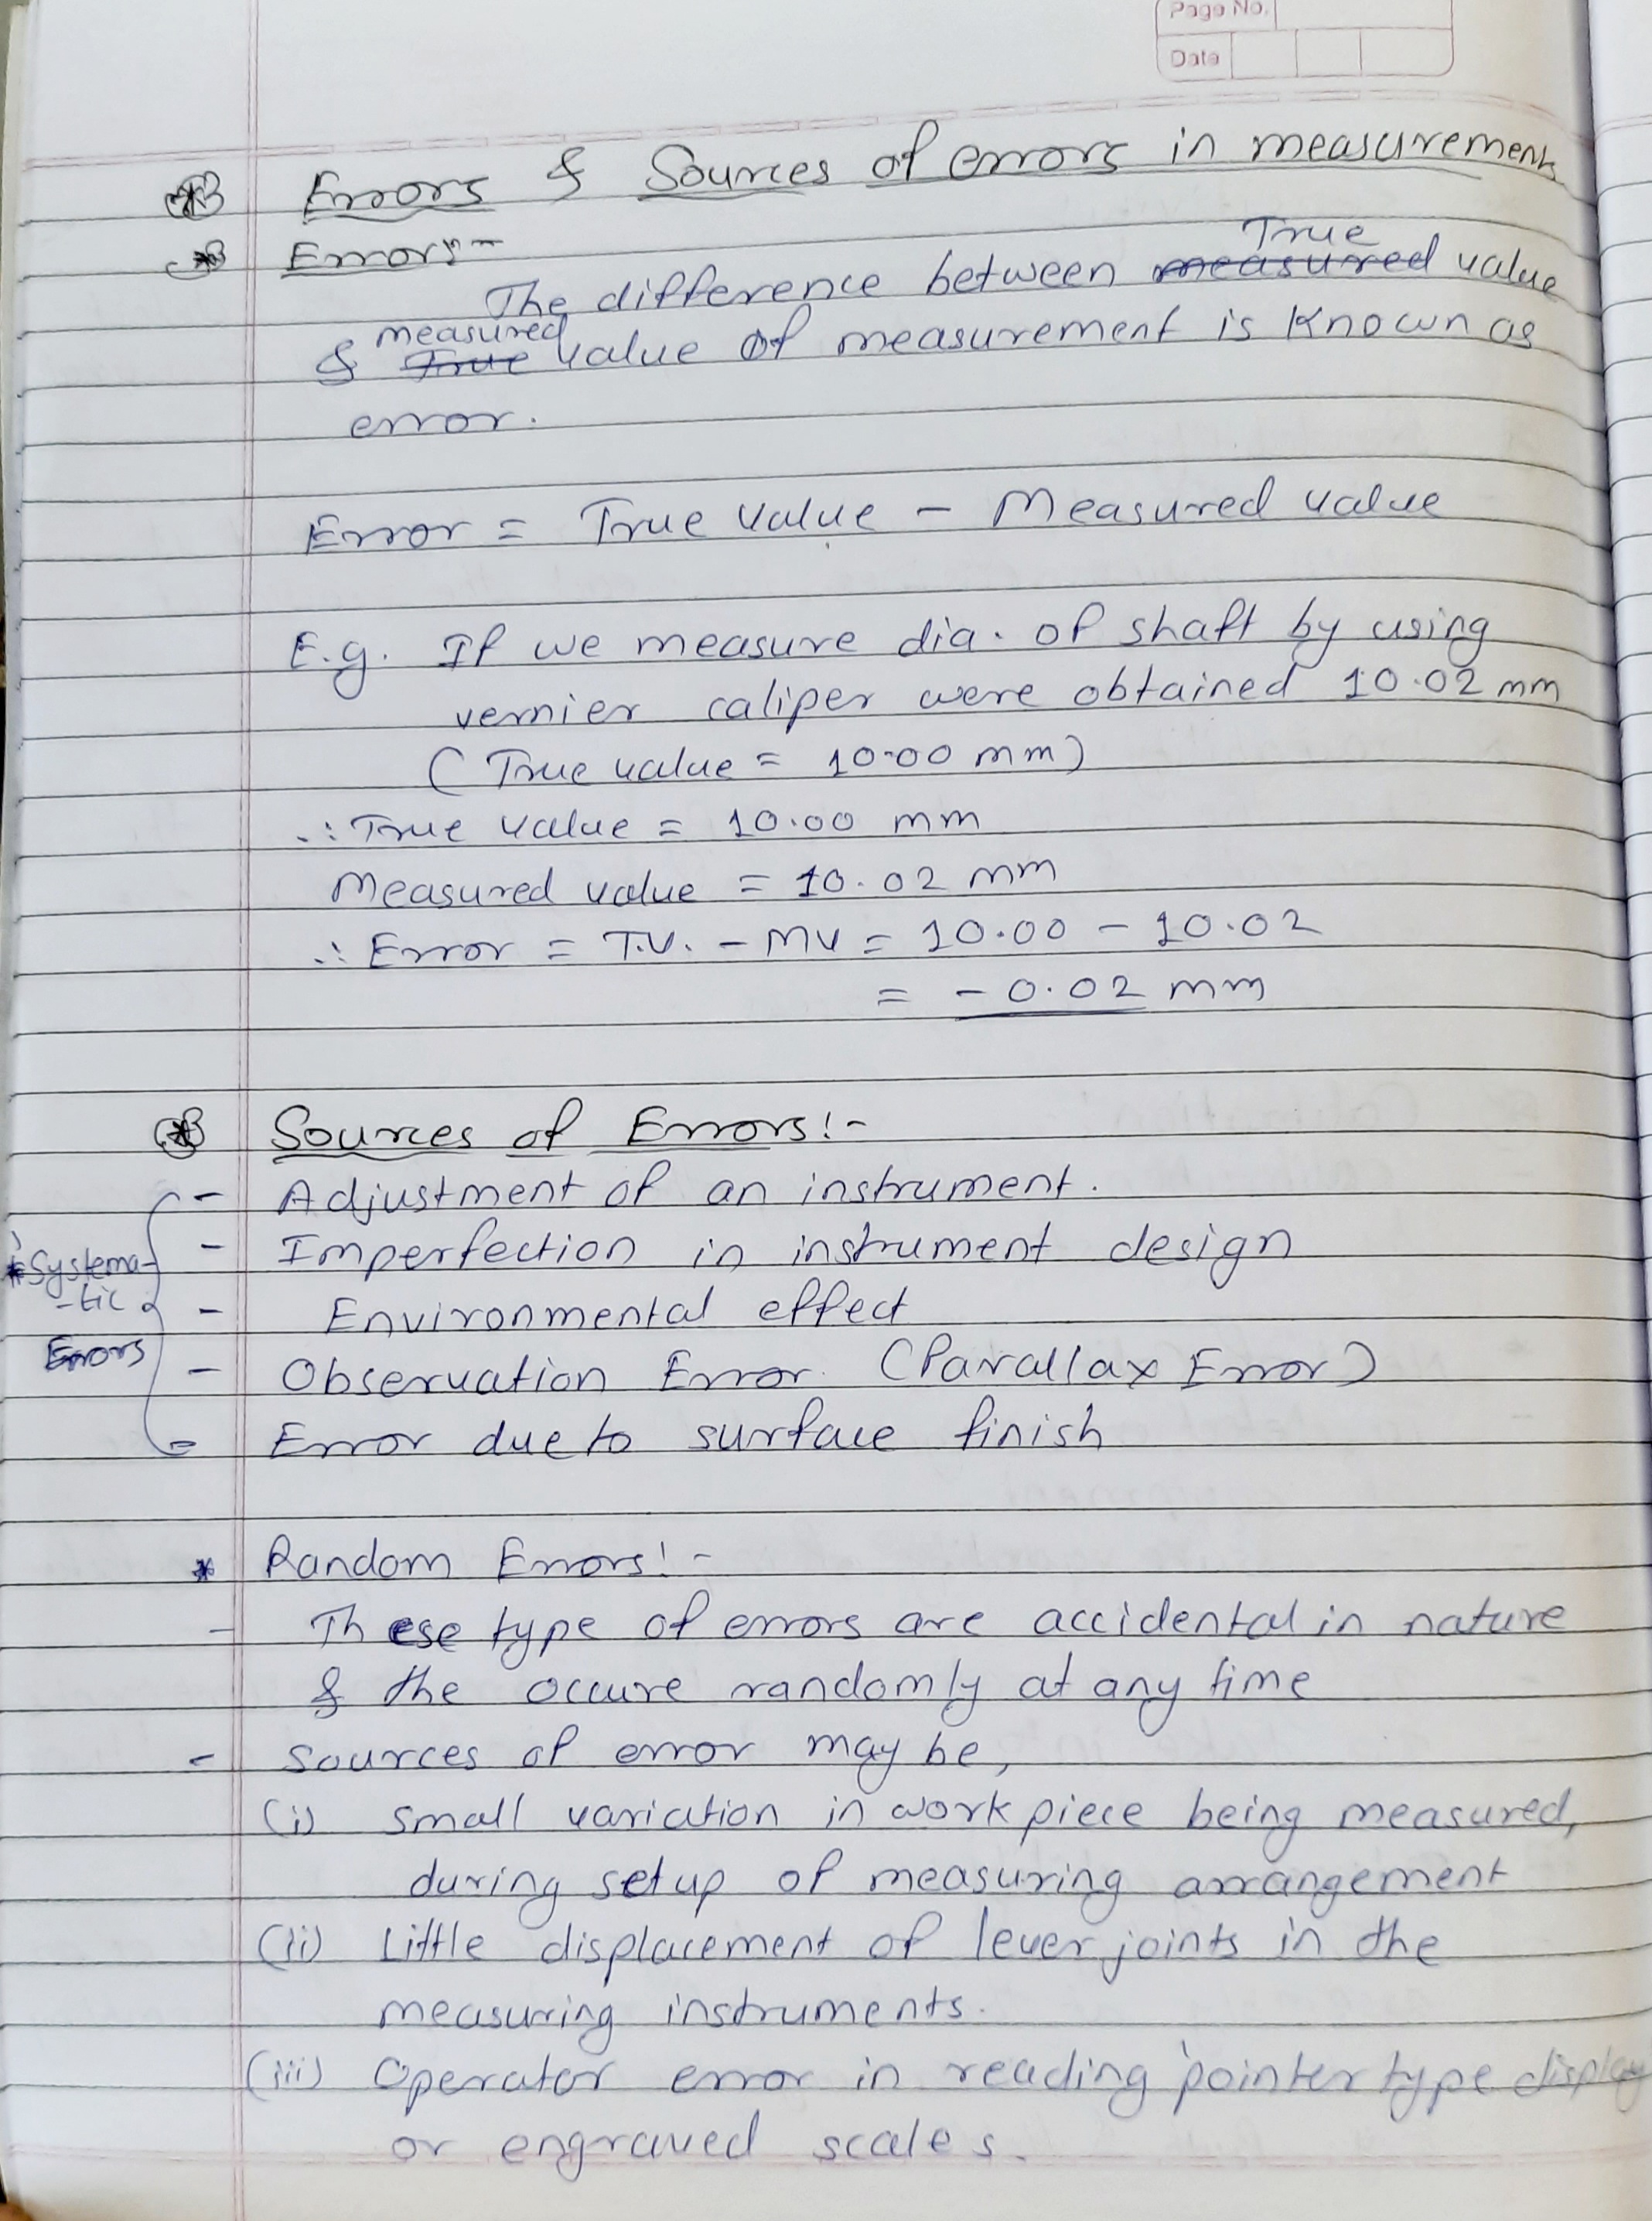 Page No.
Date
Errors & Sources of errors in measurements
Errors:-
True
The difference between measured value
measured
& True value of measurement is known as
error.
Error = True value - Measured value
E.g. If we measure dia. of shaft by using
vernier caliper were obtained 10.02 mm
( True value = 10.00 mm)
∴ True value = 10.00 mm
Measured value = 10.02 mm
∴ Error = T.V. - MV = 10.00 - 10.02
= - 0.02 mm
Sources of Errors:-
- Adjustment of an instrument.
- Imperfection in instrument design
* Systema-
-tic
Errors
- Environmental effect
- Observation Error. (Parallax Error)
= Error due to surface finish
* Random Errors:-
- These type of errors are accidental in nature
& the occure randomly at any time
- Sources of error may be,
(i) Small variation in work piece being measured,
during setup of measuring arrangement
(ii) Little displacement of lever joints in the
measuring instruments.
(iii) Operator error in reading pointer type display
or engraved scales.